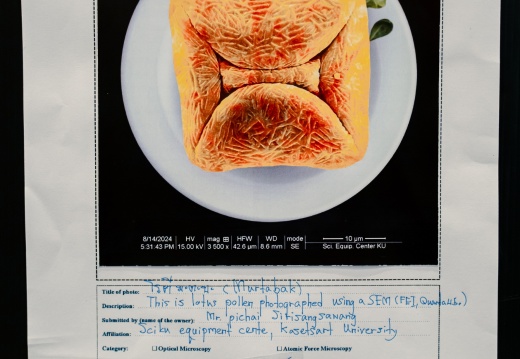 8/14/2024 HV mag ⊞ HFW WD mode 10 µm
5:31:43 PM 15.00 kV 3 500 x 42.6 µm 8.6 mm SE Sci. Equip. Center KU
Title of photo: (Murtabak)
Description: This is lotus pollen photographed using a SEM (FEI,
Submitted by (name of the owner): Mr. pichai Jitisangsanang
Affiliation: equipment cente, Kasetsart University
Category: ☐ Optical Microscopy ☐ Atomic Force Microscopy